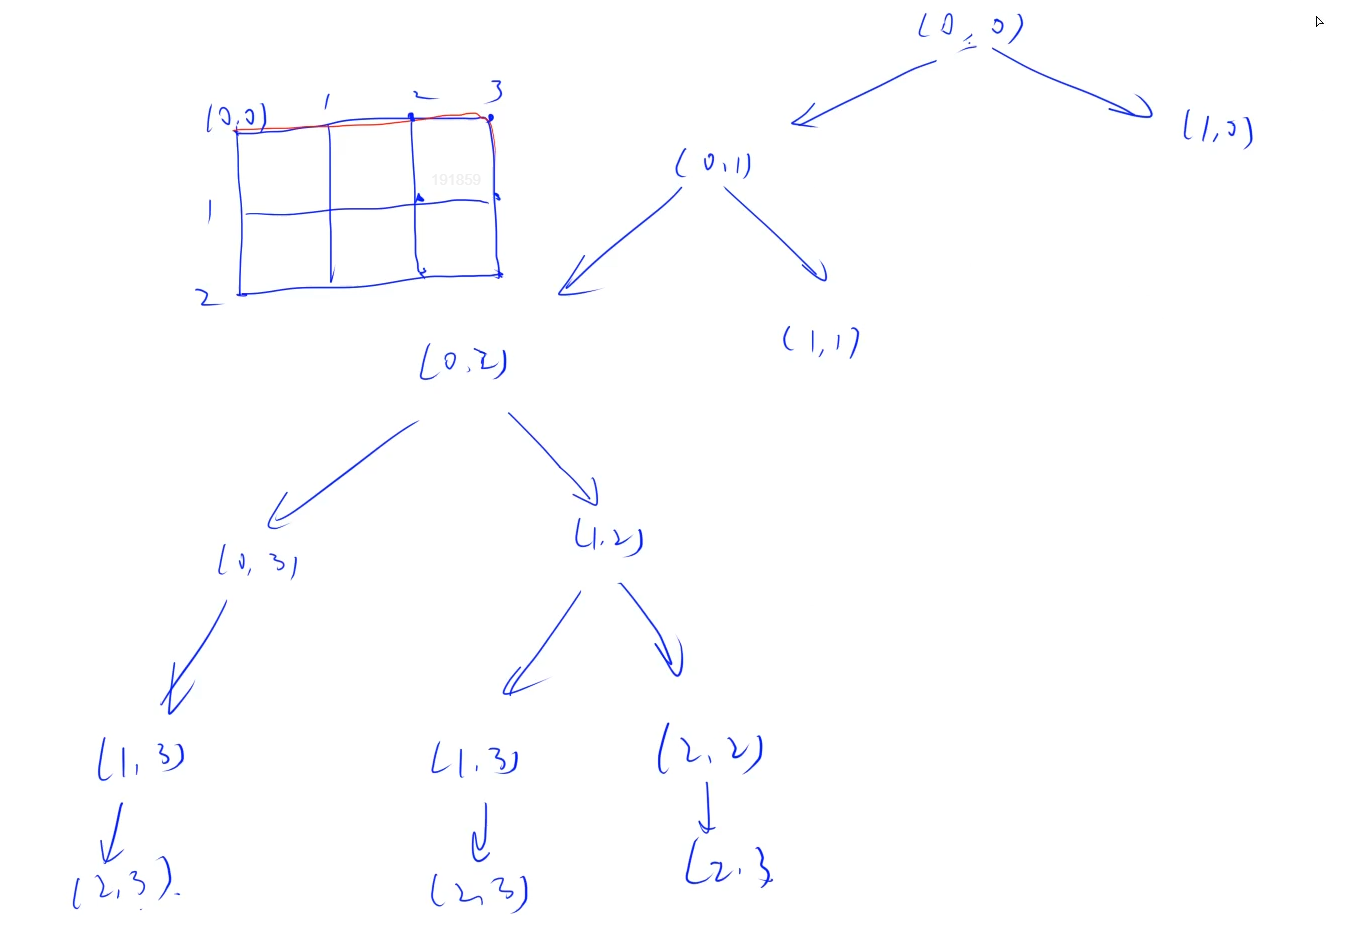 (0,0)
(0,0) 1 2 3
191859
1
2
(0,1)
(1,0)
(0,2)
(1,1)
(0,3)
(1,2)
(1,3)
(1,3)
(2,2)
(2,3).
(2,3)
(2,3